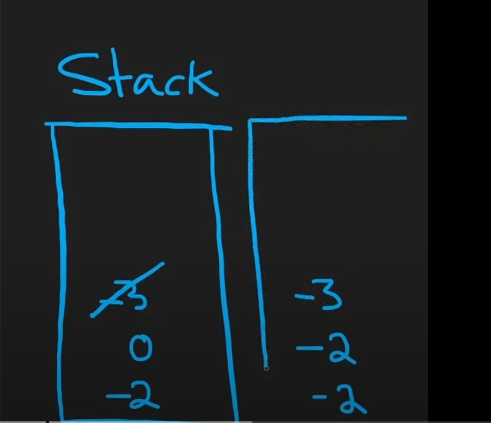 Stack
-3 -3
0 -2
-2 -2